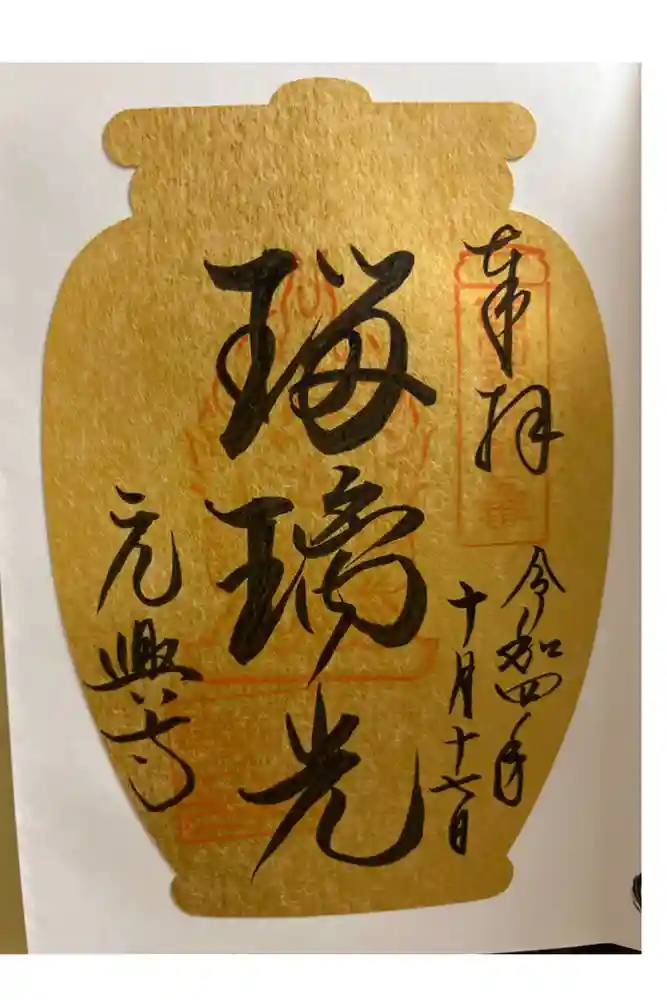 奉拝
令和四年
十月十七日
瑠璃光
元興寺